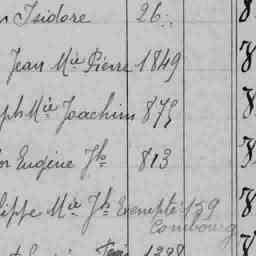 Isidore 26
Jean Mie Pierre 1849
ph Mie Joachim 875
or Eugène Jh 813
ippe Mie Jh Exempté 159
Combourg